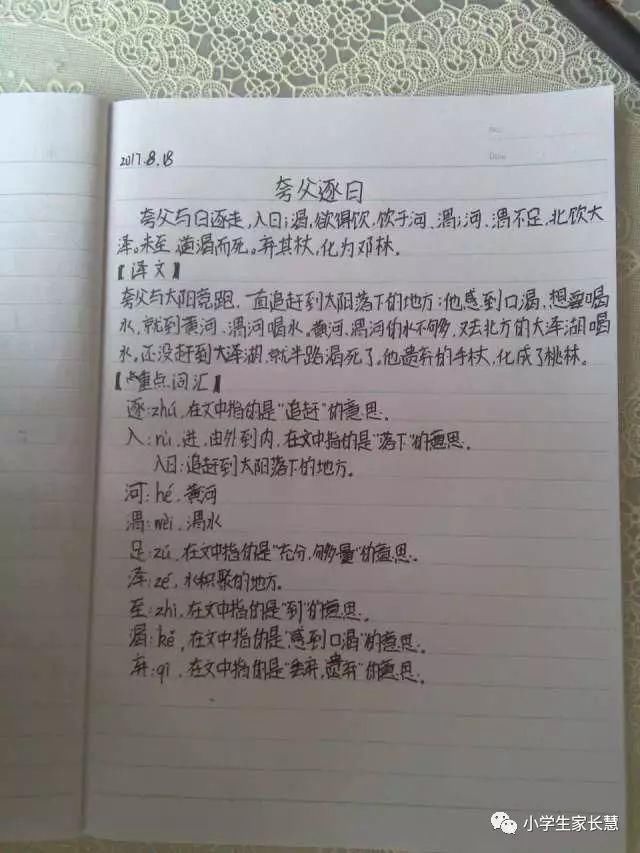 No.
Date
2017.8.18
夸父逐日
夸父与日逐走,入日;渴,欲得饮,饮于河、渭;河、渭不足,北饮大
泽。未至,道渴而死。弃其杖,化为邓林。
【译文】
夸父与太阳竞跑,一直追赶到太阳落下的地方;他感到口渴,想要喝
水,就到黄河、渭河喝水。黄河、渭河的水不够,又去北方的大泽湖喝
水。还没赶到大泽湖,就半路渴死了。他遗弃的手杖,化成了桃林。
【重点词汇】
逐:zhú,在文中指的是“追赶”的意思。
入:rù,进,由外到内,在文中指的是“落下”的意思。
入日:追赶到太阳落下的地方。
河:hé,黄河
渭:wèi,渭水
足:zú,在文中指的是“充分,够量”的意思。
泽:zé,水积聚的地方。
至:zhì,在文中指的是“到”的意思。
渴:kě,在文中指的是“感到口渴”的意思。
弃:qì,在文中指的是“丢弃,遗弃”的意思。
小学生家长慧